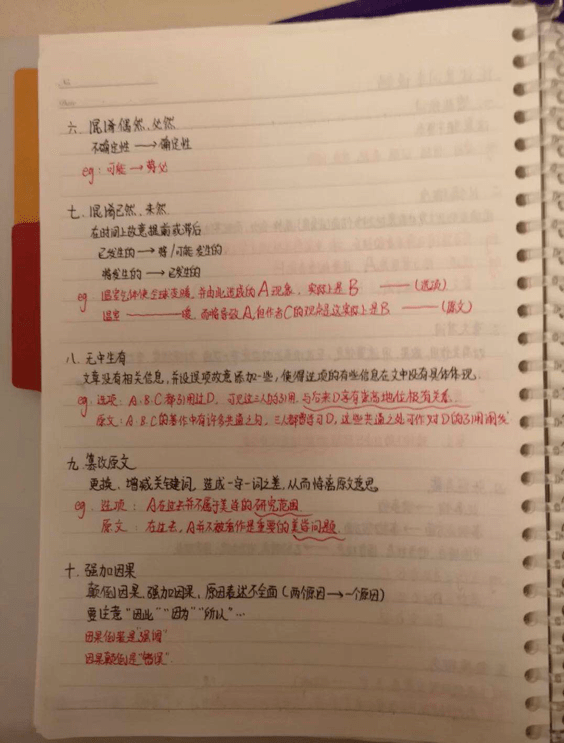 六、混淆偶然、必然
不确定性 → 确定性
eg：可能 → 势必
七、混淆已然、未然
在时间上故意提前或滞后
已发生的 → 将/可能发生的
将发生的 → 已发生的
eg：温室气体使全球变暖，并由此造成的A现象，实际上是B ——（选项）
温室——暖，而略奇效A，但作者C的观点是这实际上是B ——（原文）
八、无中生有
文章没有相关信息，并设选项故意添加一些，使得选项的有些信息在文中没有具体体现。
eg：选项：A·B·C都引用过D，可见这三人的引用，与后来D享有崇高地位极有关系。
原文：A·B·C的著作中有许多共通之句，三人都曾学习D，这些共通之处可作对D的引用阐发
九、篡改原文
更换、增减关键词，造成一字一词之差，从而悖离原文意思。
eg：选项：A在过去并不属于美学的研究范围
原文：在过去，A并不被看作是重要的美学问题
十、强加因果
颠倒因果，强加因果，原因表述不全面（两个原因→一个原因）
要注意“因此”“因为”“所以”…
因果倒置是“强调”
因果颠倒是“错误”